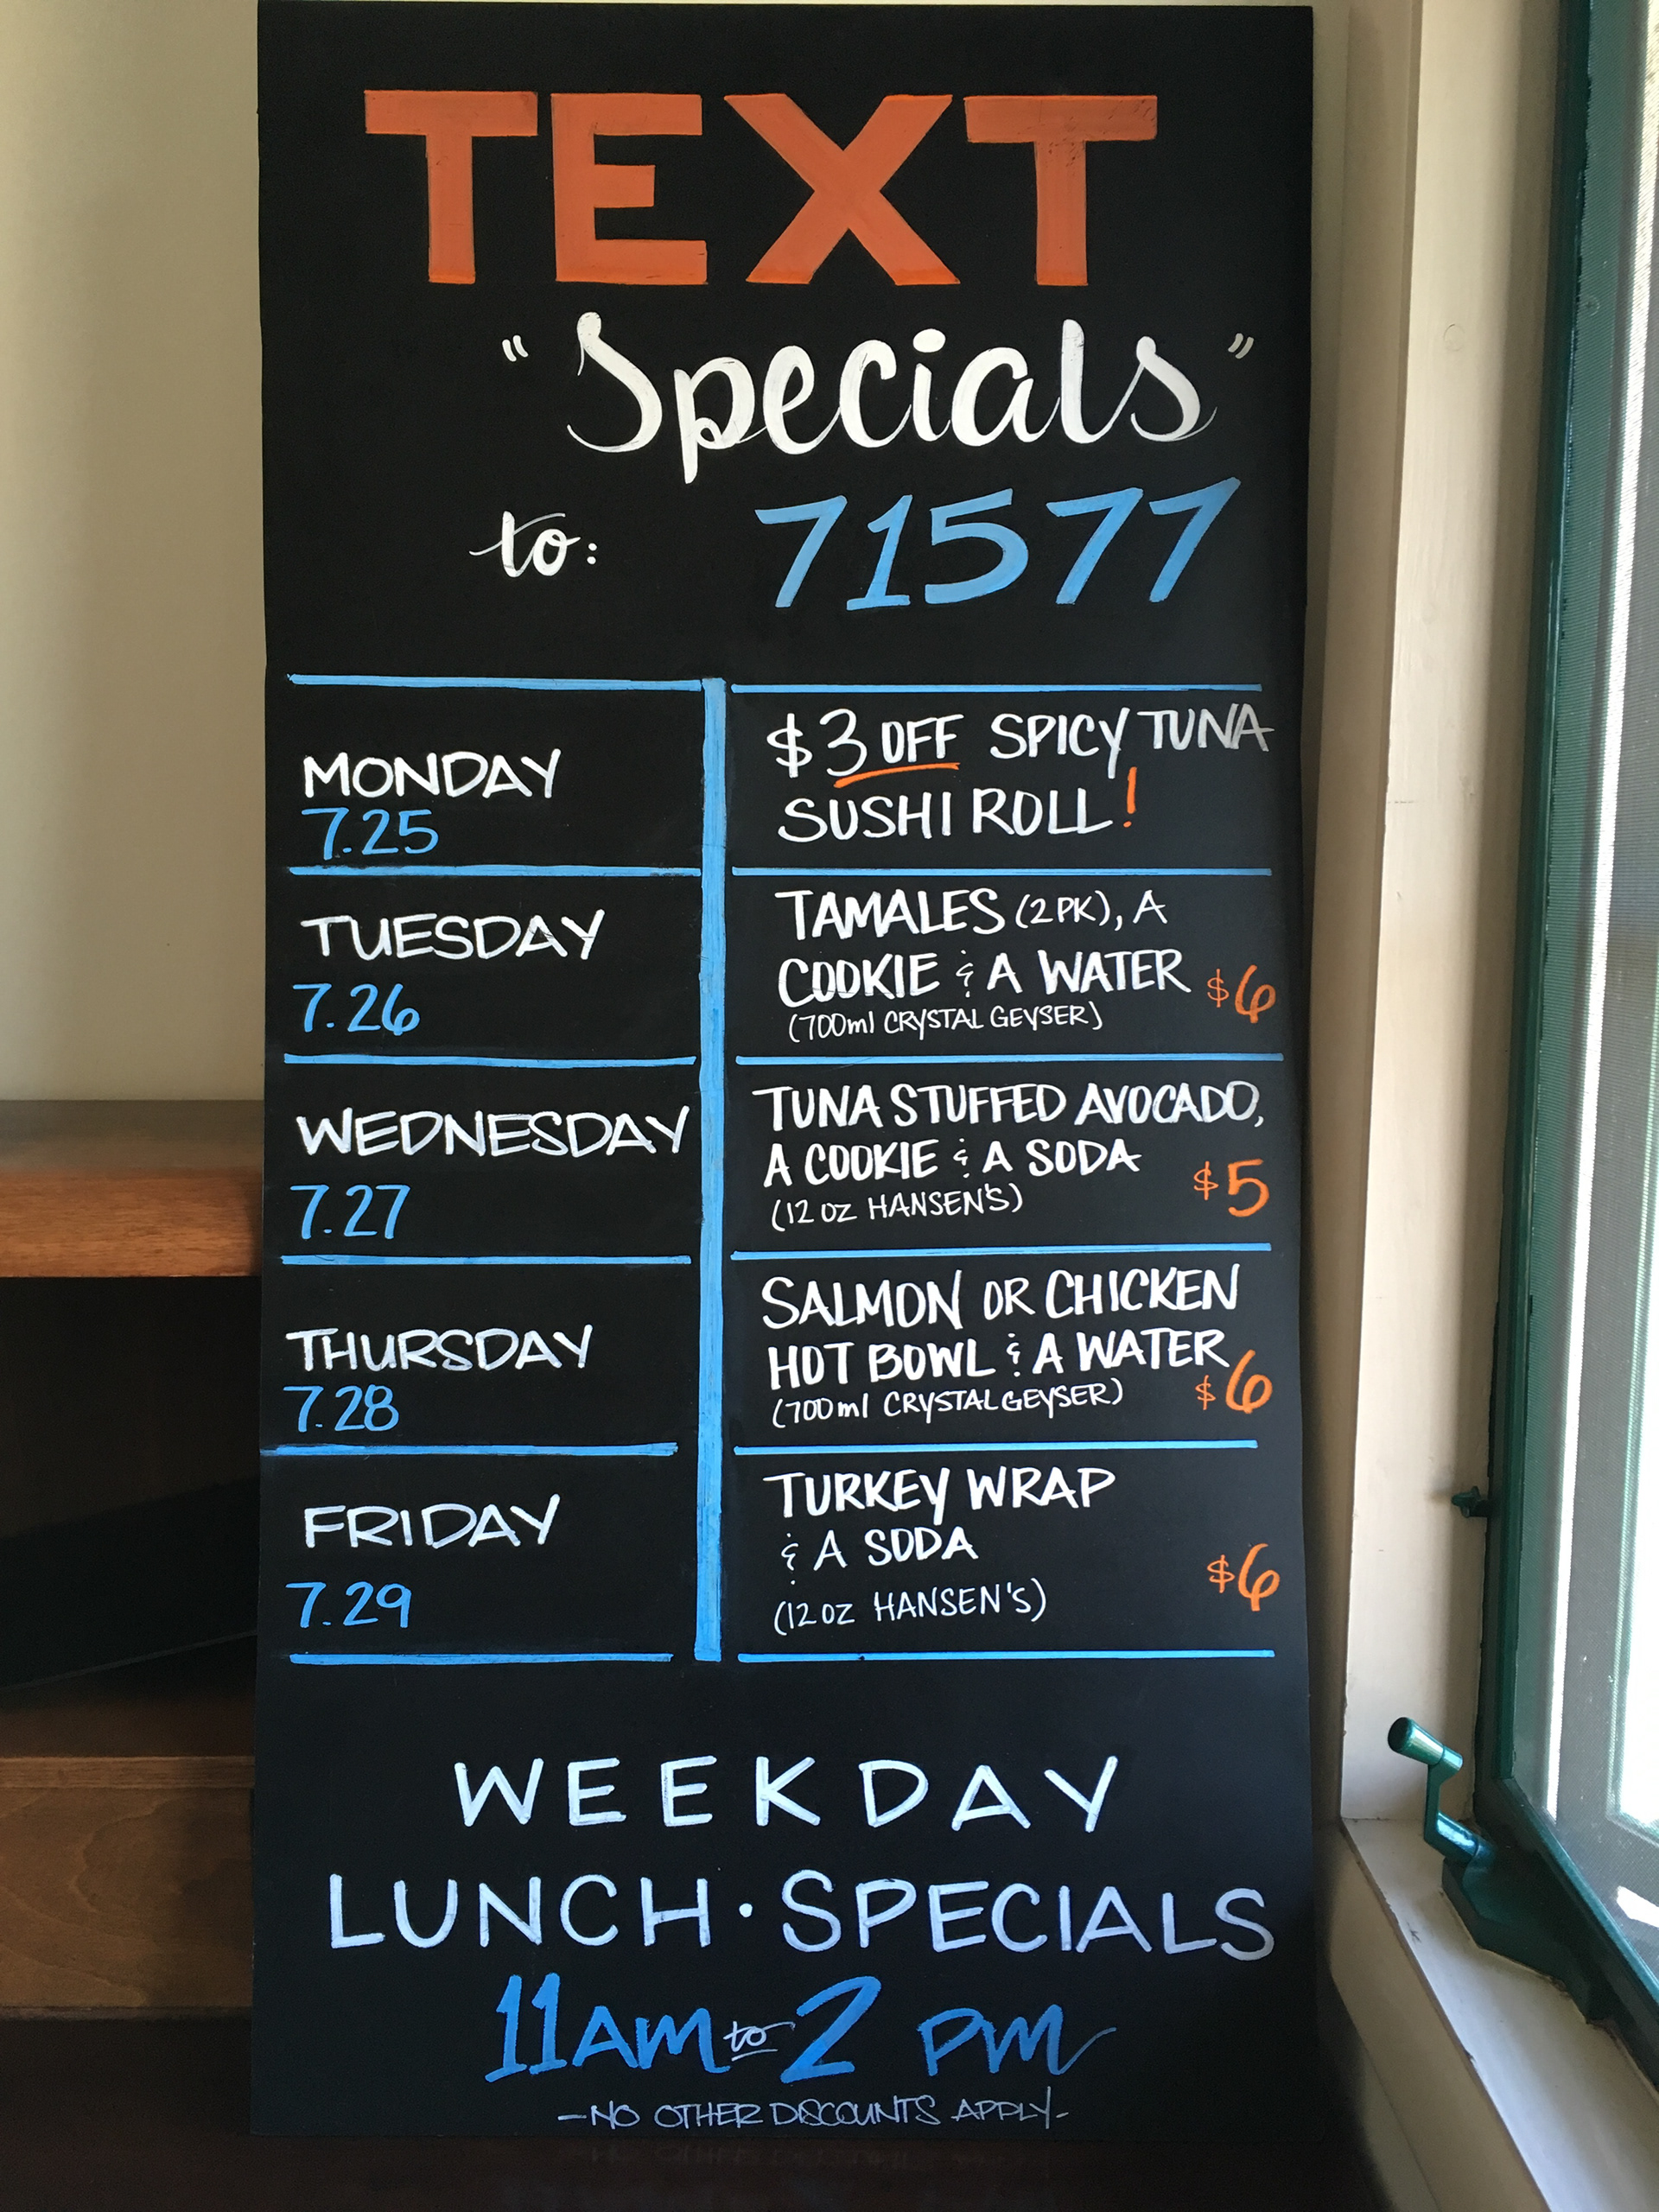 TEXT
"Specials"
to: 71577
MONDAY
7.25
$3 OFF SPICY TUNA
SUSHI ROLL!
TUESDAY
7.26
TAMALES (2PK), A
COOKIE & A WATER $6
(700ml CRYSTAL GEYSER)
WEDNESDAY
7.27
TUNA STUFFED AVOCADO,
A COOKIE & A SODA
(12 OZ HANSEN'S) $5
THURSDAY
7.28
SALMON OR CHICKEN
HOT BOWL & A WATER
(700ml CRYSTAL GEYSER) $6
FRIDAY
7.29
TURKEY WRAP
& A SODA
(12 OZ HANSEN'S) $6
WEEKDAY
LUNCH · SPECIALS
11AM to 2 PM
- NO OTHER DISCOUNTS APPLY -